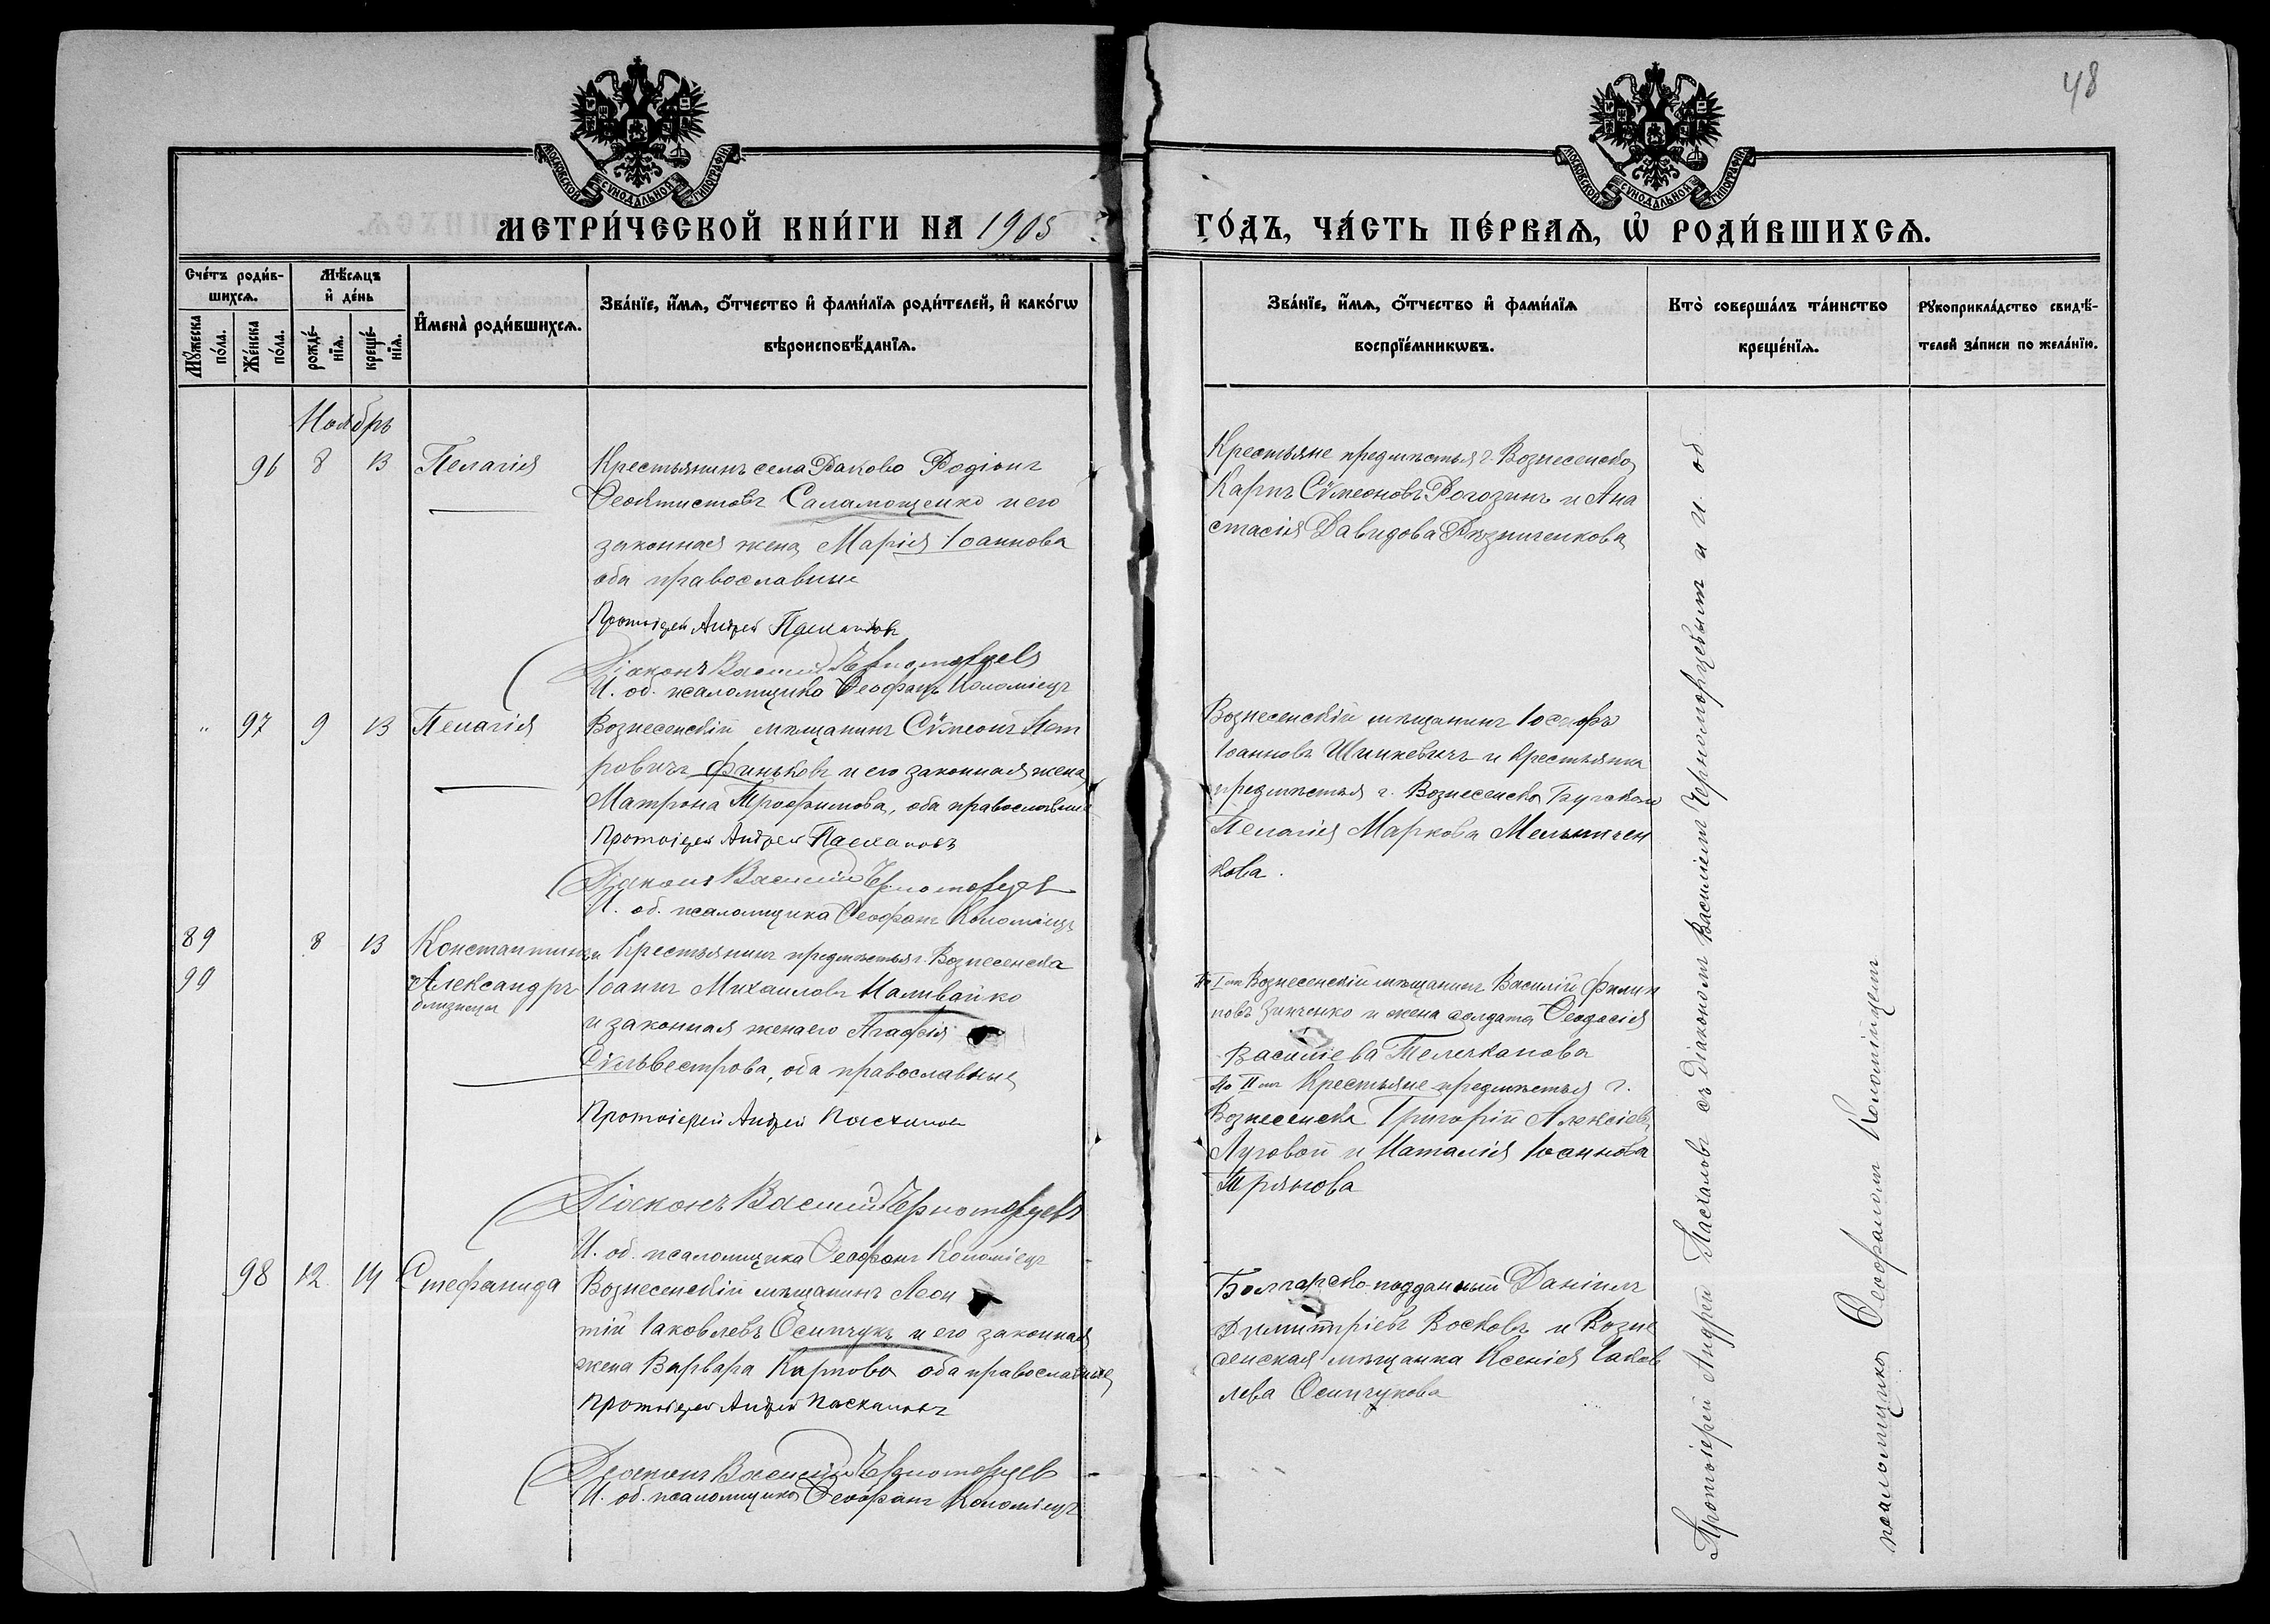 48
МОСКОВСКОЙ СѴНОДАЛЬНОЙ ТИПОГРАФІИ
МОСКОВСКОЙ СѴНОДАЛЬНОЙ ТИПОГРАФІИ
МЕТРИ́ЧЕСКОЙ КНИ́ГИ НА 1905 ГО́ДЪ, ЧА́СТЬ ПЕ́РВАѦ, Ѡ҆ РОДИ́ВШИХСѦ.
Сче́тъ роди́в-
шихсѧ.
Мꙋ́жеска по́ла.
Же́нска по́ла.
Мѣ́сѧцъ
и҆ де́нь
рожде́-
нїѧ.
креще́-
нїѧ.
И҆мена̀ роди́вшихсѧ.
Зва́нїе, и҆́мѧ, о҆́тчество и҆ фами́лїѧ роди́телей, и҆ како́гѡ
вѣроисповѣ́данїѧ.
Зва́нїе, и҆́мѧ, о҆́тчество и҆ фами́лїѧ
воспрїе́мникѡвъ.
Кто̀ соверша́лъ та́инство
креще́нїѧ.
Рꙋкоприкла́дство свидѣ́-
телей за́писи по жела́нїю.
Ноябрь
96 8 13 Пелагія
Крестьянинъ села Раково Родіонъ
Феоктистовъ Саламощенко и его
законная жена Марія Іоаннова
оба православные
Протоіерей Андрей Пасхаловъ
Діаконъ Василій Черноморцевъ
И. об. псаломщика Феофанъ Коломіецъ
Крестьяне предмѣстья г. Вознесенска
Карпъ Сѵмеоновъ Рогозинъ и Ана
стасія Давидова Рѣзниченкова
" 97 9 13 Пелагія
Вознесенскій мѣщанинъ Сѵмеонъ Пет
ровичъ Финьковъ и его законная жена
Матрона Трофимова, оба православные
Протоіерей Андрей Пасхаловъ
Діаконъ Василій Черноморцевъ
И. об. псаломщика Феофанъ Коломіецъ
Вознесенскій мѣщанинъ Іосифъ
Іоанновъ Шинкевичъ и крестьянка
предмѣстья г. Вознесенска Бугскаго
Пелагія Маркова Мельничен
кова.
89 8 13 Константинъ и
90 Александръ
близнецы
Крестьянинъ предмѣстья г. Вознесенска
Іоаннъ Михаиловъ Наливайко
и законная жена его Агафія
Сильвестрова, оба православные
Протоіерей Андрей Пасхаловъ
Діаконъ Василій Черноморцевъ
И. об. псаломщика Феофанъ Коломіецъ
По I-мъ Вознесенскій мѣщанинъ Василій Филип
повъ Зинченко и жена солдата Феодосія
Василіева Телечканова
По II-мъ Крестьяне предмѣстья г.
Вознесенска Григорій Алексіевъ
Луговой и Наталія Іоаннова
98 12 14 Стефанида
Вознесенскій мѣщанинъ Леон
тій Іаковлевъ Осипчукъ и его законная
жена Варвара Карпова оба православные
Протоіерей Андрей Пасхаловъ
Діаконъ Василій Черноморцевъ
И. об. псаломщика Феофанъ Коломіецъ
Болгарско-подданный Даніилъ
Димитріевъ Восковъ и Возне
сенская мѣщанка Ксенія Іаков
лева Осипчукова
Протоіерей Андрей Пасхаловъ съ Діакономъ Василіемъ Черноморцевымъ и И. об.
псаломщика Феофаномъ Коломійцемъ